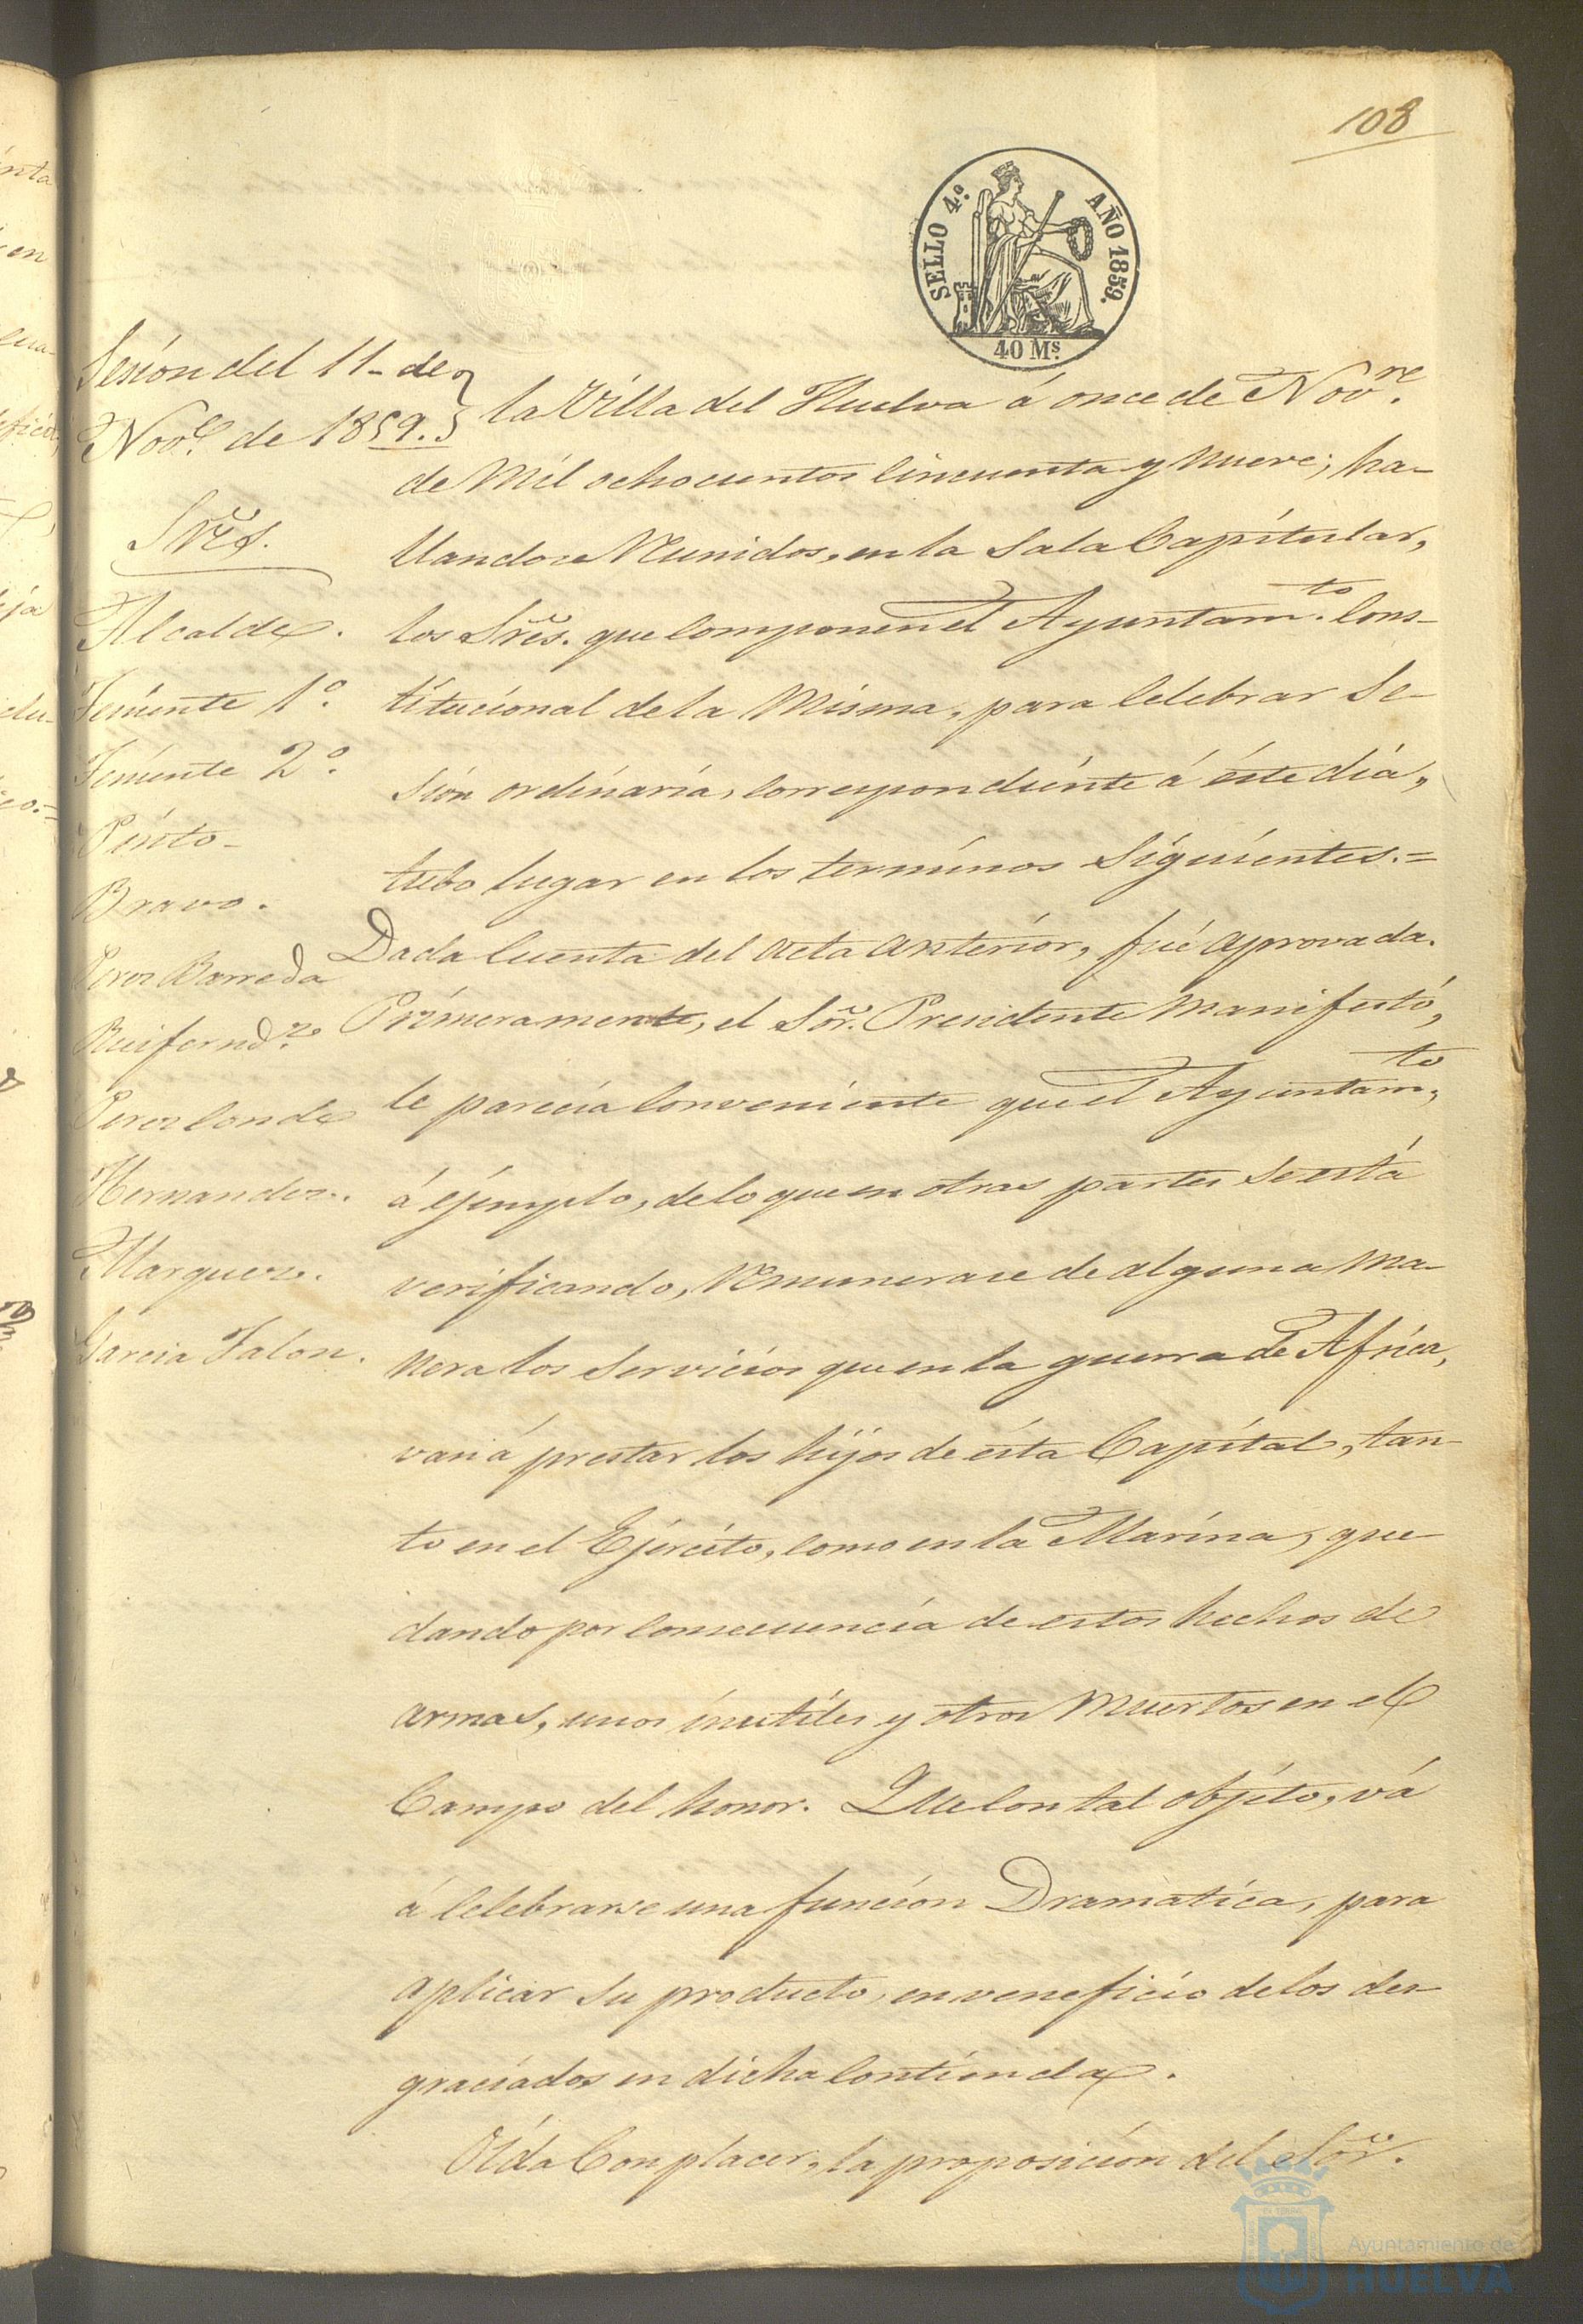 108
SELLO 4º. AÑO 1859.
40 Ms.
Sesion del 11 de
Nove. de 1859.
Sres.
Alcalde.
Teniente 1º.
Teniente 2º.
Pinto
Bravo.
Perez Barreda
Ruiferndz.
Perez Conde
Hernandez.
Marquez.
Garcia Jalon.
la Villa del Huelva á once de Novre.
de Mil ochocientos Cincuenta y Nueve; ha-
llandose Reunidos, en la Sala Capitular,
los Sres. que Componen el Ayuntamto. Cons-
titucional de la Misma, para Celebrar Se-
sion ordinaria, Correspondiente á éste dia,
tubo lugar en los terminos Siguientes.=
Dada Cuenta del Acta Anterior, fué Aprovada.
Primeramente, el Sor. Presidente Manifestó,
le parecia Conveniente que el Ayuntamto,
á ejemplo, de lo que en otras partes Se está
verificando, Remunerase de alguna Ma-
nera los Servicios que en la guerra de Africa,
van á prestar los hijos de ésta Capital, tan-
to en el Ejército, Como en la Marina, que-
dando por Consecuencia de estos hechos de
armas, unos inutiles y otros Muertos en el
Campo del honor. Que Con tal objeto, vá
á Celebrarse una funcion Dramatica, para
aplicar Su producto, en veneficio de los des-
graciados en dicha Contienda.
Oida Con placer, la proposicion del Sor.
Ayuntamiento de
HUELVA